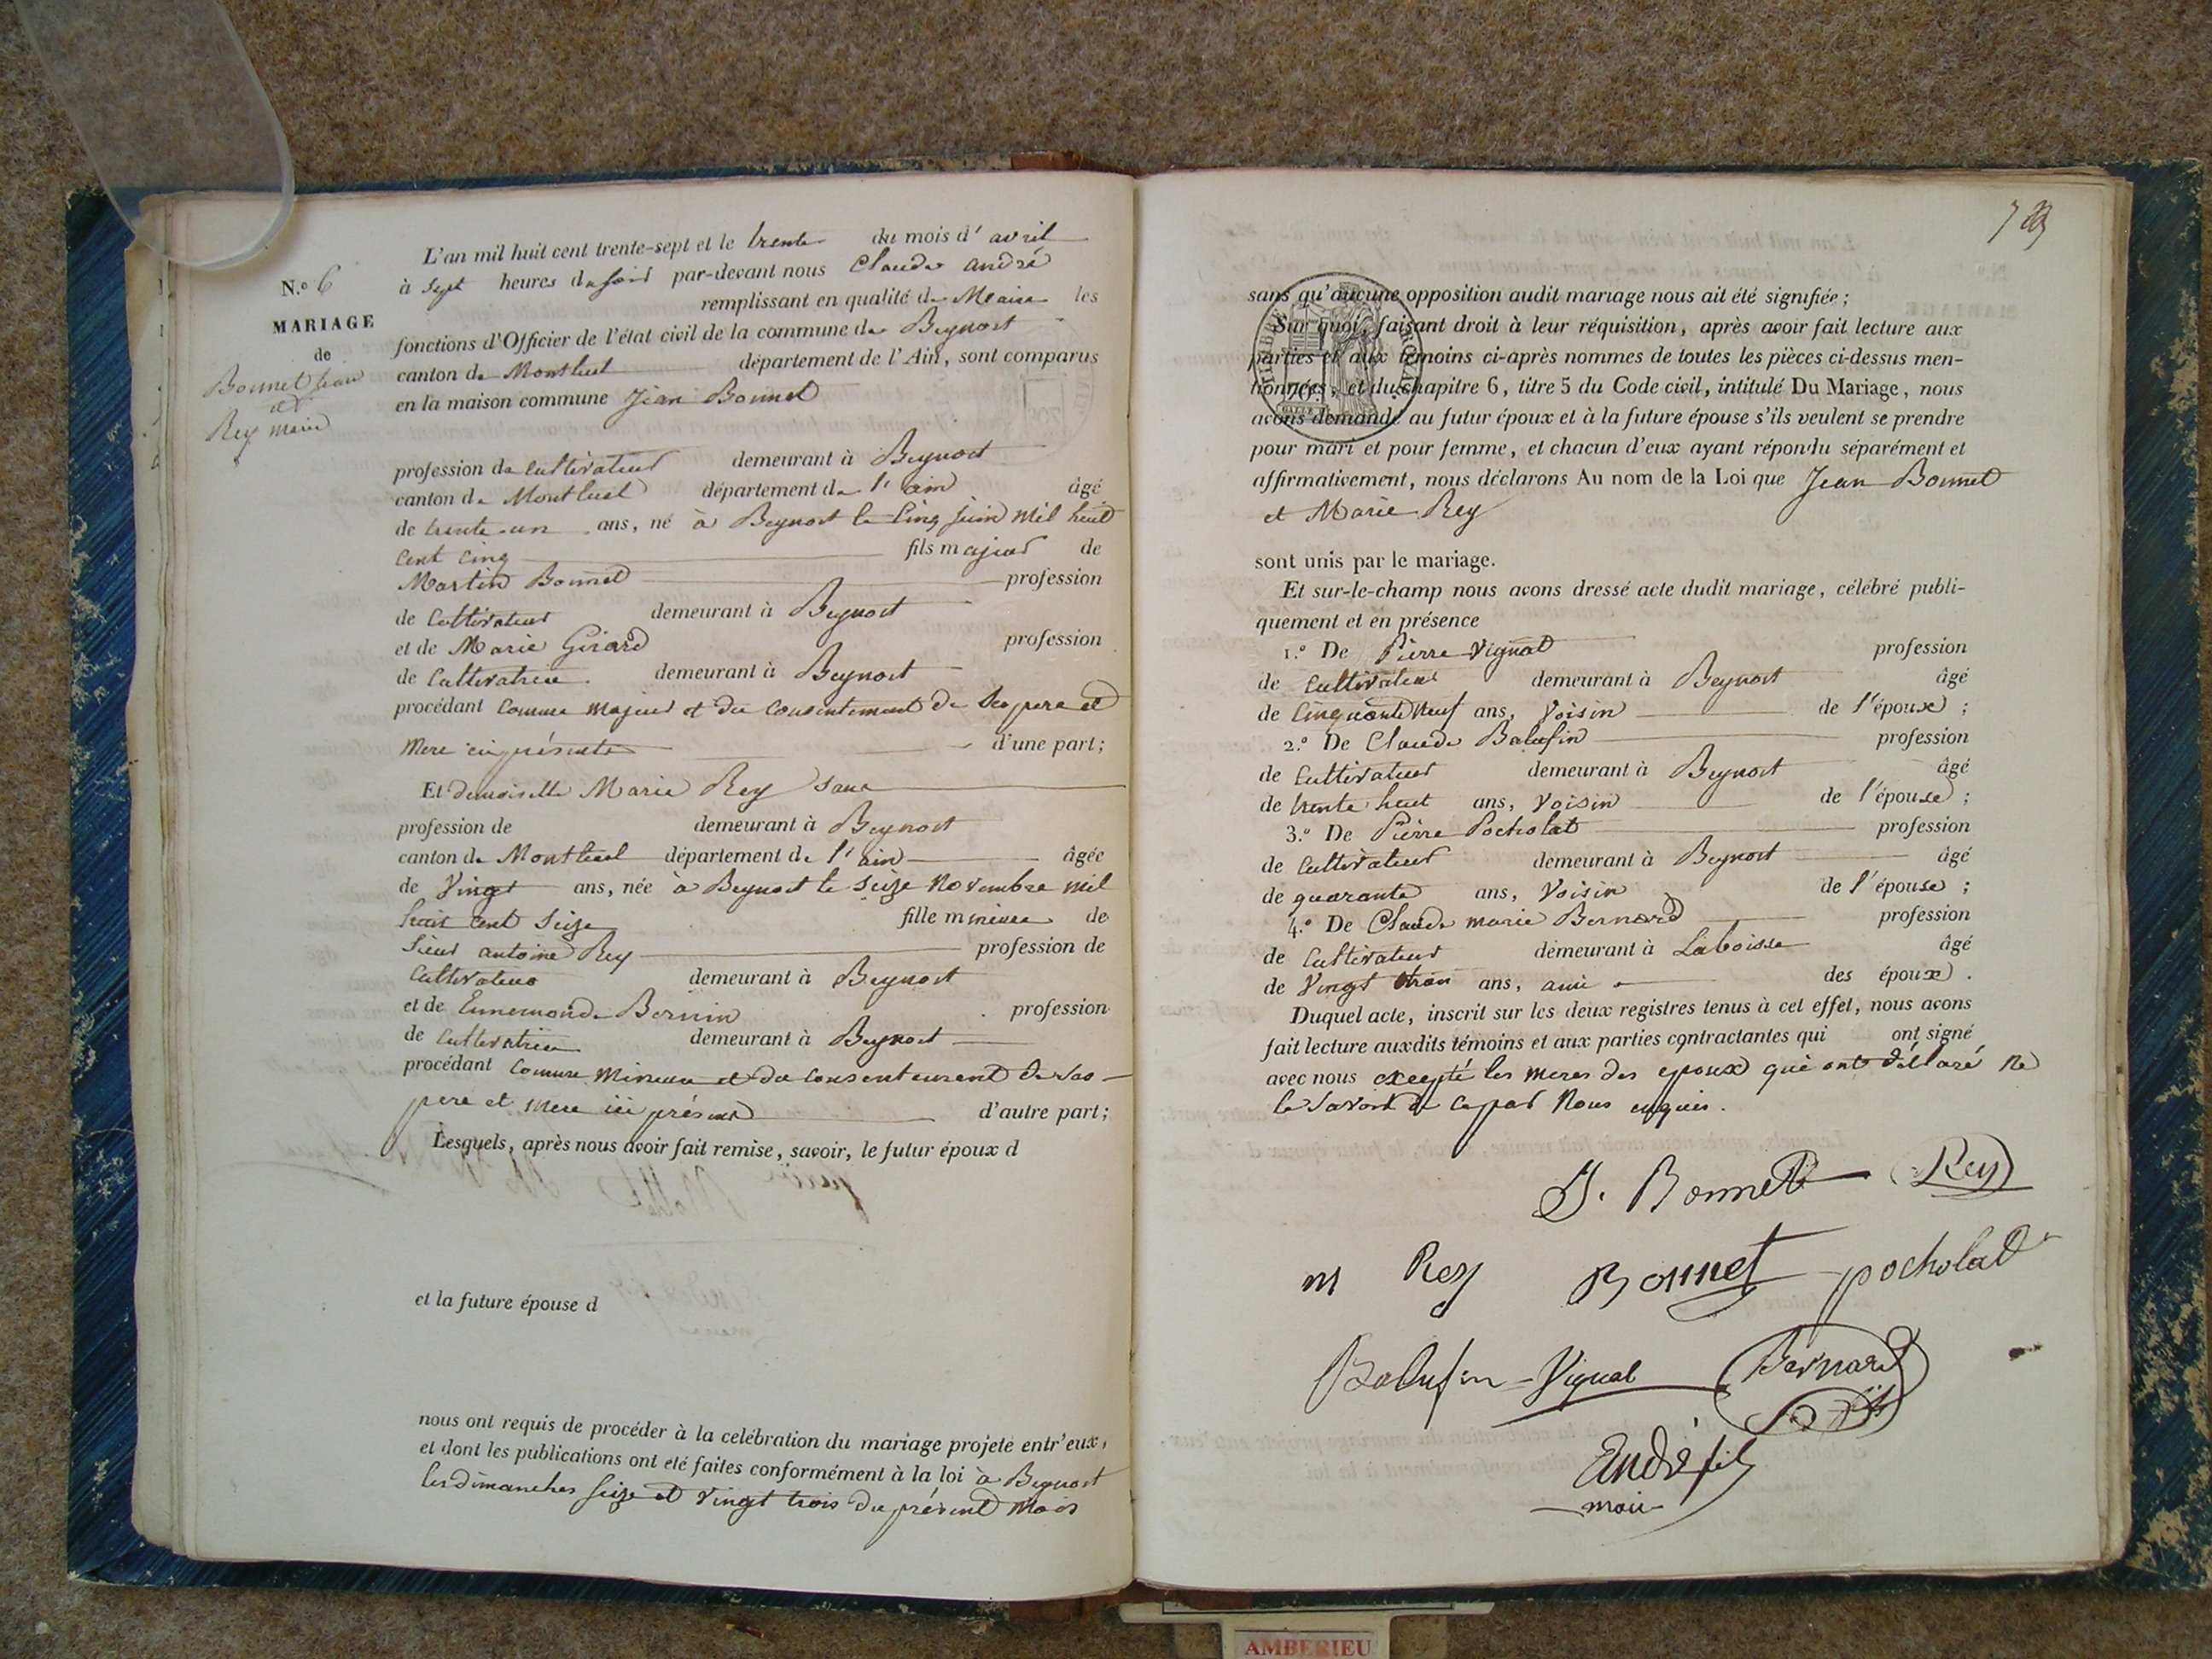 N.o 6
MARIAGE
de
Bonnet Jean
et
Rey marie
L'an mil huit cent trente-sept et le trente du mois d'avril
à sept heures du soir par-devant nous Claude andré
remplissant en qualité de Maire les
fonctions d'Officier de l'état civil de la commune de Beynost
canton de Montluel département de l'Ain, sont comparus
en la maison commune Jean Bonnet
profession de Cultivateur demeurant à Beynost
canton de Montluel département de l'ain âgé
de trente-un ans, né à Beynost le Cinq juin Mil huit
Cent Cinq fils majeur de
Martin Bonnet profession
de Cultivateur demeurant à Beynost
et de Marie Girard profession
de Cultivatrice demeurant à Beynost
procédant Comme majeur et du Consentement de Ses pere et
Mere ici présents d'une part;
Et demoiselle Marie Rey Sans
profession de demeurant à Beynost
canton de Montluel département de l'ain âgée
de Vingt ans, née à Beynost le Seize Novembre Mil
huit Cent Seize fille mineure de
Sieur antoine Rey profession de
Cultivateur demeurant à Beynost
et de Ennemonde Bernin profession
de Cultivatrice demeurant à Beynost
procédant Comme Mineure et du Consentement de Ses
pere et Mere ici présent d'autre part;
Lesquels, après nous avoir fait remise, savoir, le futur époux d
et la future épouse d
nous ont requis de procéder à la celébration du mariage projeté entr'eux,
et dont les publications ont été faites conformément à la loi à Beynost
les dimanches Seize et Vingt trois du présent Mois
sans qu'aucune opposition audit mariage nous ait été signifiée;
Sur quoi, faisant droit à leur réquisition, après avoir fait lecture aux
parties et aux témoins ci-après nommes de toutes les pièces ci-dessus men-
tionnées, et du chapitre 6, titre 5 du Code civil, intitulé Du Mariage, nous
avons demandé au futur époux et à la future épouse s'ils veulent se prendre
pour mari et pour femme, et chacun d'eux ayant répondu séparément et
affirmativement, nous déclarons Au nom de la Loi que Jean Bonnet
et Marie Rey
sont unis par le mariage.
Et sur-le-champ nous avons dressé acte dudit mariage, célébré publi-
quement et en présence
1.o De Pierre Vignat profession
de Cultivateur demeurant à Beynost âgé
de Cinquante Neuf ans, Voisin de l'époux;
2.o De Claude Balufin profession
de Cultivateur demeurant à Beynost âgé
de trente huit ans, Voisin de l'épouse;
3.o De Pierre Pocholat profession
de Cultivateur demeurant à Beynost âgé
de quarante ans, Voisin de l'épouse;
4.o De Claude marie Bernard profession
de Cultivateur demeurant à Laboisse âgé
de Vingt trois ans, ami des époux.
Duquel acte, inscrit sur les deux registres tenus à cet effet, nous avons
fait lecture auxdits témoins et aux parties contractantes qui ont signé
avec nous excepté les meres des epoux qui ont déclaré Ne
le Savoir de ce par Nous enquis.
J. Bonnet Rey
m Rey Bonnet pocholat
Balufin Vignat Bernard
André fils
maire
AMBERIEU